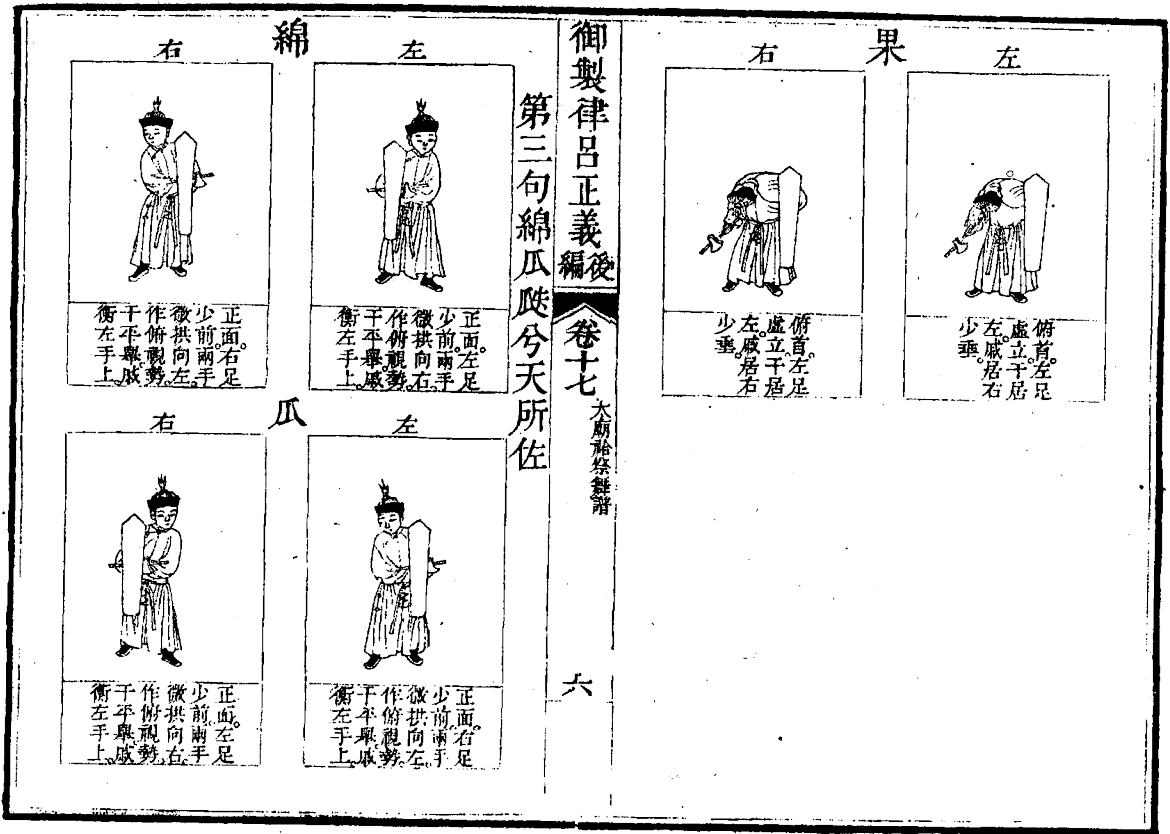 果
左
俯首。左足
虛立。干居
左。戚居右
少垂。
右
俯首。左足
虛立。干居
左。戚居右
少垂。
御製律呂正義後編
卷十七
太廟祫祭舞譜
六
第三句綿瓜瓞兮天所佐
綿
左
正面。左足
少前。兩手
微拱向右。
作俯視勢。
干平舉。戚
衡左手上。
右
正面。右足
少前。兩手
微拱向左。
作俯視勢。
干平舉。戚
衡左手上。
瓜
左
正面。右足
少前。兩手
微拱向左。
作俯視勢。
干平舉。戚
衡左手上。
右
正面。左足
少前。兩手
微拱向右。
作俯視勢。
干平舉。戚
衡左手上。